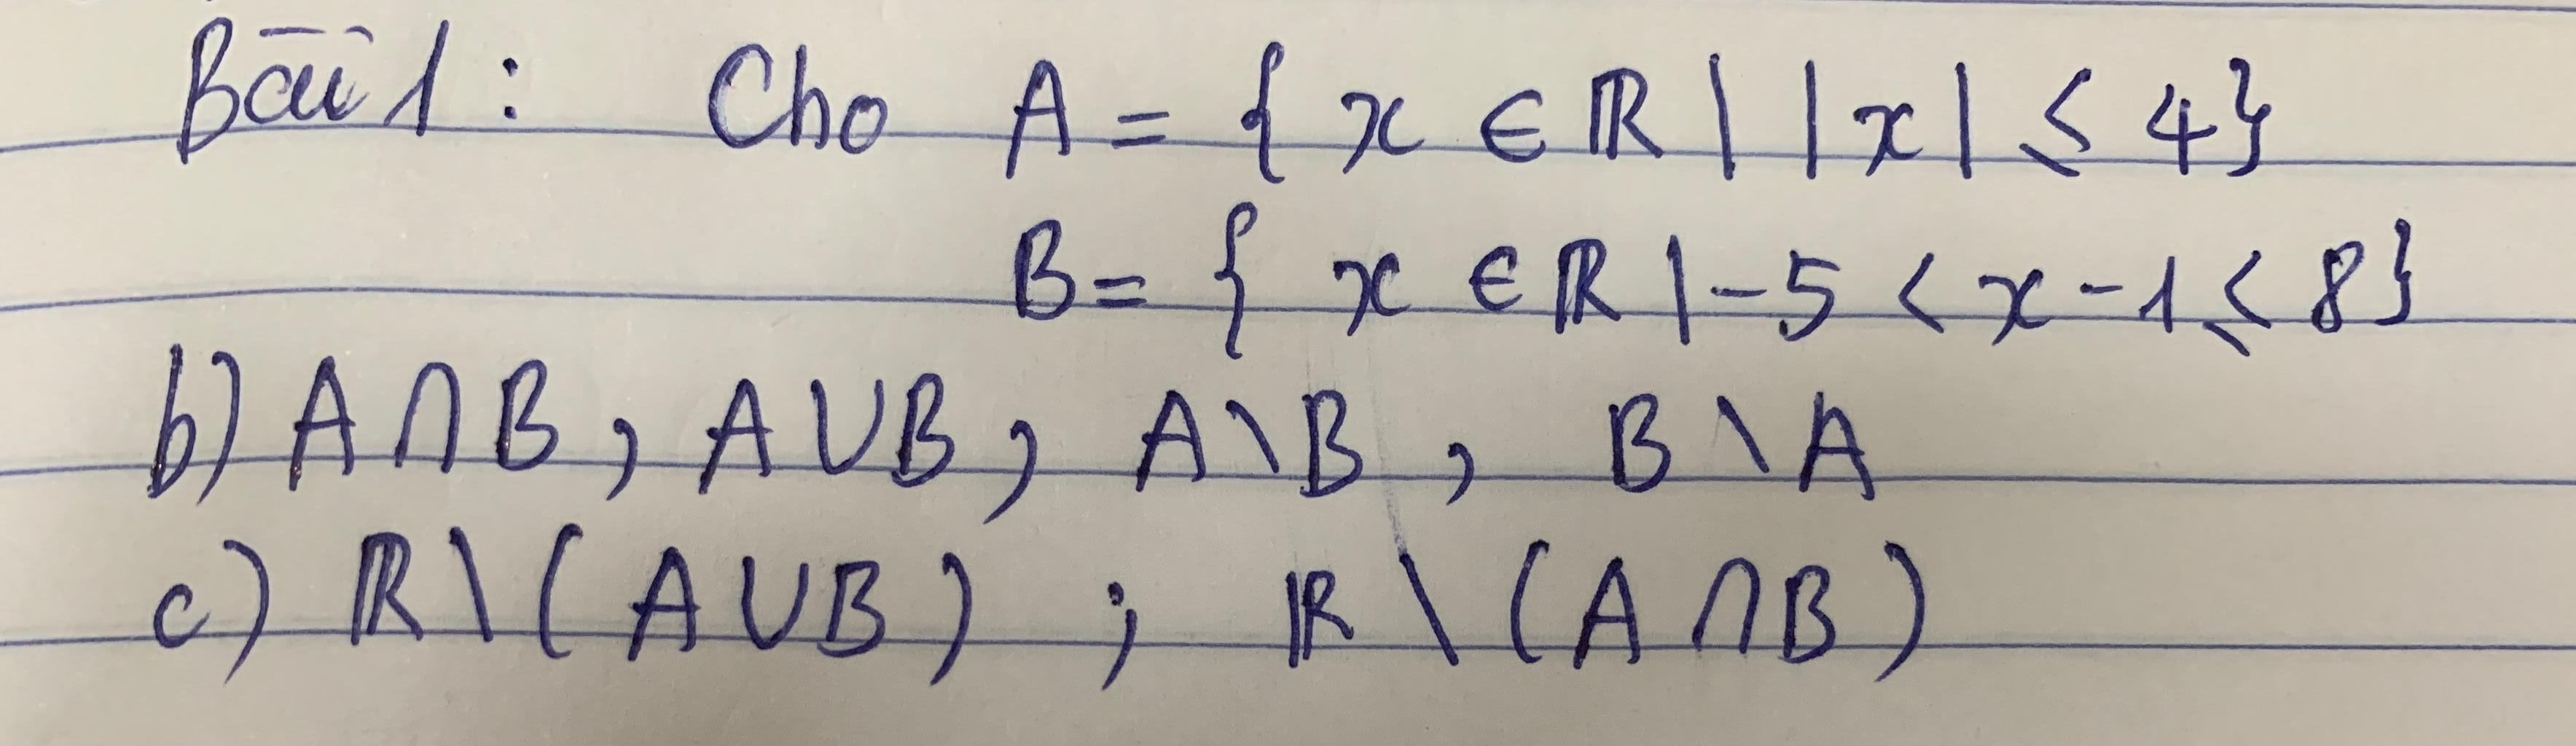 Bài 1: Cho A = { x ∈ ℝ | |x| ≤ 4}
B = { x ∈ ℝ | -5 < x - 1 ≤ 8}
b) A ∩ B, A ∪ B, A \ B, B \ A
c) ℝ \ ( A ∪ B ) ; ℝ \ ( A ∩ B )